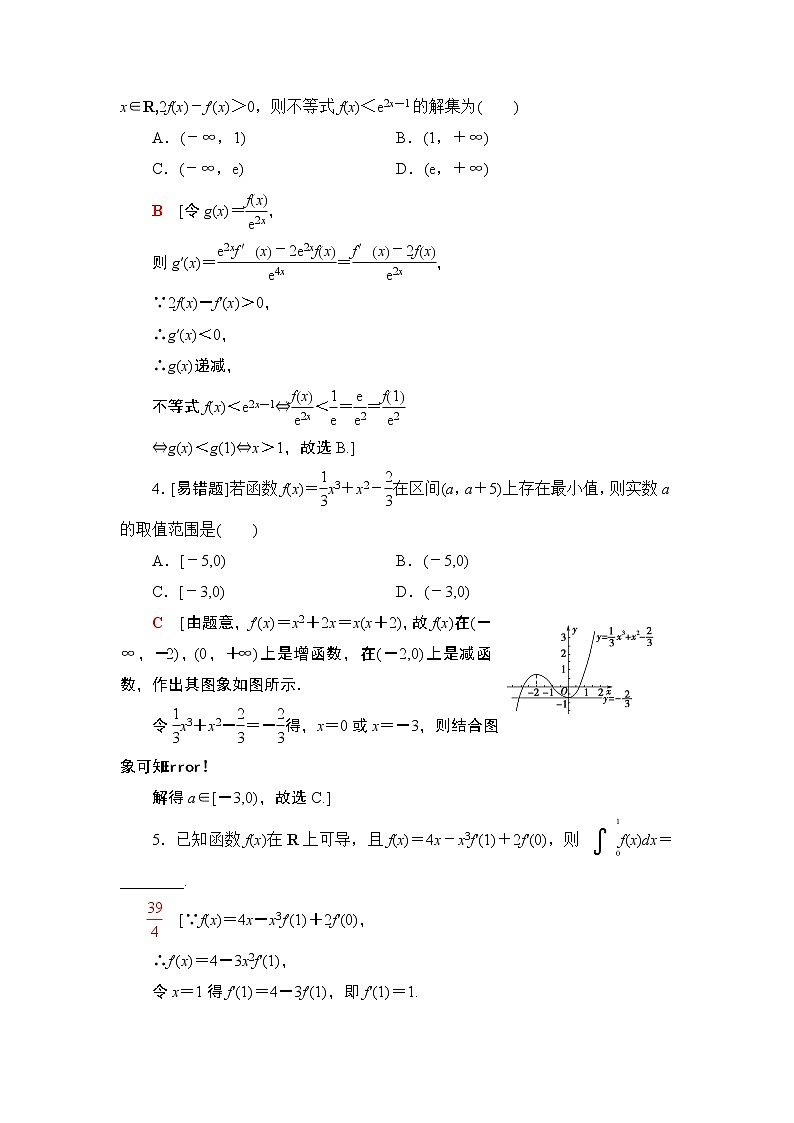 x∈R,2f(x)－f′(x)＞0，则不等式 f(x)＜e²ˣ⁻¹的解集为(　　)
A．(－∞，1)　　B．(1，＋∞)
C．(－∞，e)　　D．(e，＋∞)
B　[令 g(x)＝f(x)/e²ˣ，
则 g′(x)＝(e²ˣf′(x)－2e²ˣf(x))/e⁴ˣ＝(f′(x)－2f(x))/e²ˣ，
∵2f(x)－f′(x)＞0，
∴g′(x)＜0，
∴g(x)递减，
不等式 f(x)＜e²ˣ⁻¹⇔f(x)/e²ˣ＜1/e＝e/e²＝f(1)/e²
⇔g(x)＜g(1)⇔x＞1，故选 B.]
4．[易错题]若函数 f(x)＝1/3x³＋x²－2/3在区间(a，a＋5)上存在最小值，则实数 a
的取值范围是(　　)
A．[－5,0)　　B．(－5,0)
C．[－3,0)　　D．(－3,0)
C　[由题意，f′(x)＝x²＋2x＝x(x＋2)，故 f(x)在(－
∞，－2)，(0，＋∞)上是增函数，在(－2,0)上是减函
数，作出其图象如图所示.
3 y y=1/3x³+x²-2/3
2
1
-2 -1 O 1 2 x
-1 y=-2/3
令1/3x³＋x²－2/3＝－2/3得，x＝0 或 x＝－3，则结合图
象可知Error!
解得 a∈[－3,0)，故选 C.]
5．已知函数 f(x)在 R 上可导，且 f(x)＝4x－x³f′(1)＋2f′(0)，则 ∫₀¹f(x)dx＝
________.
39/4　[∵f(x)＝4x－x³f′(1)＋2f′(0)，
∴f′(x)＝4－3x²f′(1)，
令 x＝1 得 f′(1)＝4－3f′(1)，即 f′(1)＝1.